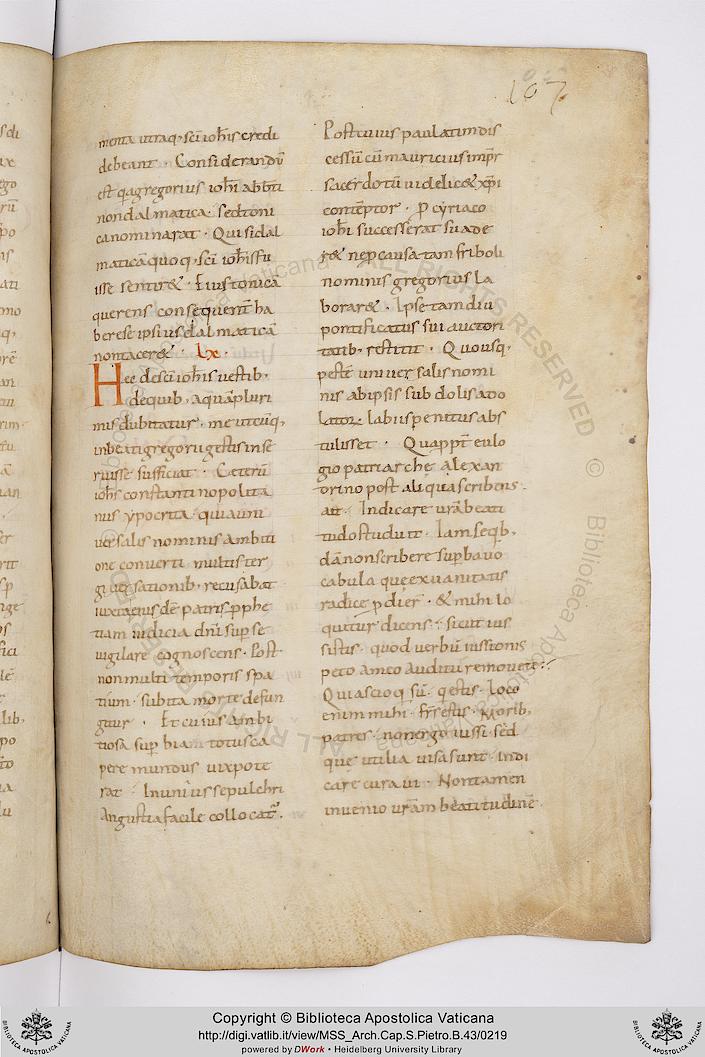 107
menta utraq; sci iohis credi
debeant · Considerandū
est q̄a gregorius iohi abbti
non dalmatica sed toni
ca nominarat · Qui si dal
maticā quoq; sci iohis fu
isse sentir& · Eius tonicā
querens consequent̄ ha
berese ipsius dalmaticā
non tacer& · lx ·
Hee de sci iohis vestib;
deq;uib; a quāpluri
mis dubitatur · me utcūq;
in beati gregorii gestus inse
ruisse sufficiat · Ceterū
iohs constantinopolita
nus ypocrita qui a uni
versalis nominis ambiti
one converti multis ter
giversationib; recusabat
iuxta eiusdē patris pphe
tiam iudicia dni sup se
vigilare cognoscens · Post
non multi temporis spa
tium · subita morte defun
gitur · Et cuius ambi
tiosa sup biam totus ca
pere mundus vix pote
rat · In unius sepulchri
Angustia facile collocat̄ ·
Post cuius paulatim dis
cessū cū mauricius impr̄
sacerdotū videlic& xp̄i
contēptor · p cyriaco
iohi successerat suade
r& ne p causa tam friboli
nominis gregorius la
borar& · Ipse tam diu
pontificatus sui auctori
tatib; restitit · Quousq;
pestē universalis nomi
nis ab ipsis subdolis ado
lator labiis penitus abs
tulisset · Qua ppt̄ eulo
gio patriarche alexan
torino post aliqua scribens ·
ait · Indicare vrā beati
tudo studuit · Iam se qb;
dā non scribere supba vo
cabula que ex vanitatis
radice pdier · & mihi lo
quitur dicens · sicut ius
sistis · quod verbū iussionis
peto a meo auditu removete
Quia scio q sū · q estis · loco
enim mihi frs estis · Morib;
patres · non ergo iussi · sed
que utilia visa sunt · Indi
care curavi · Non tamen
invenio vrām beatitudinē ·
Copyright © Biblioteca Apostolica Vaticana
http://digi.vatlib.it/view/MSS_Arch.Cap.S.Pietro.B.43/0219
powered by DWork • Heidelberg University Library